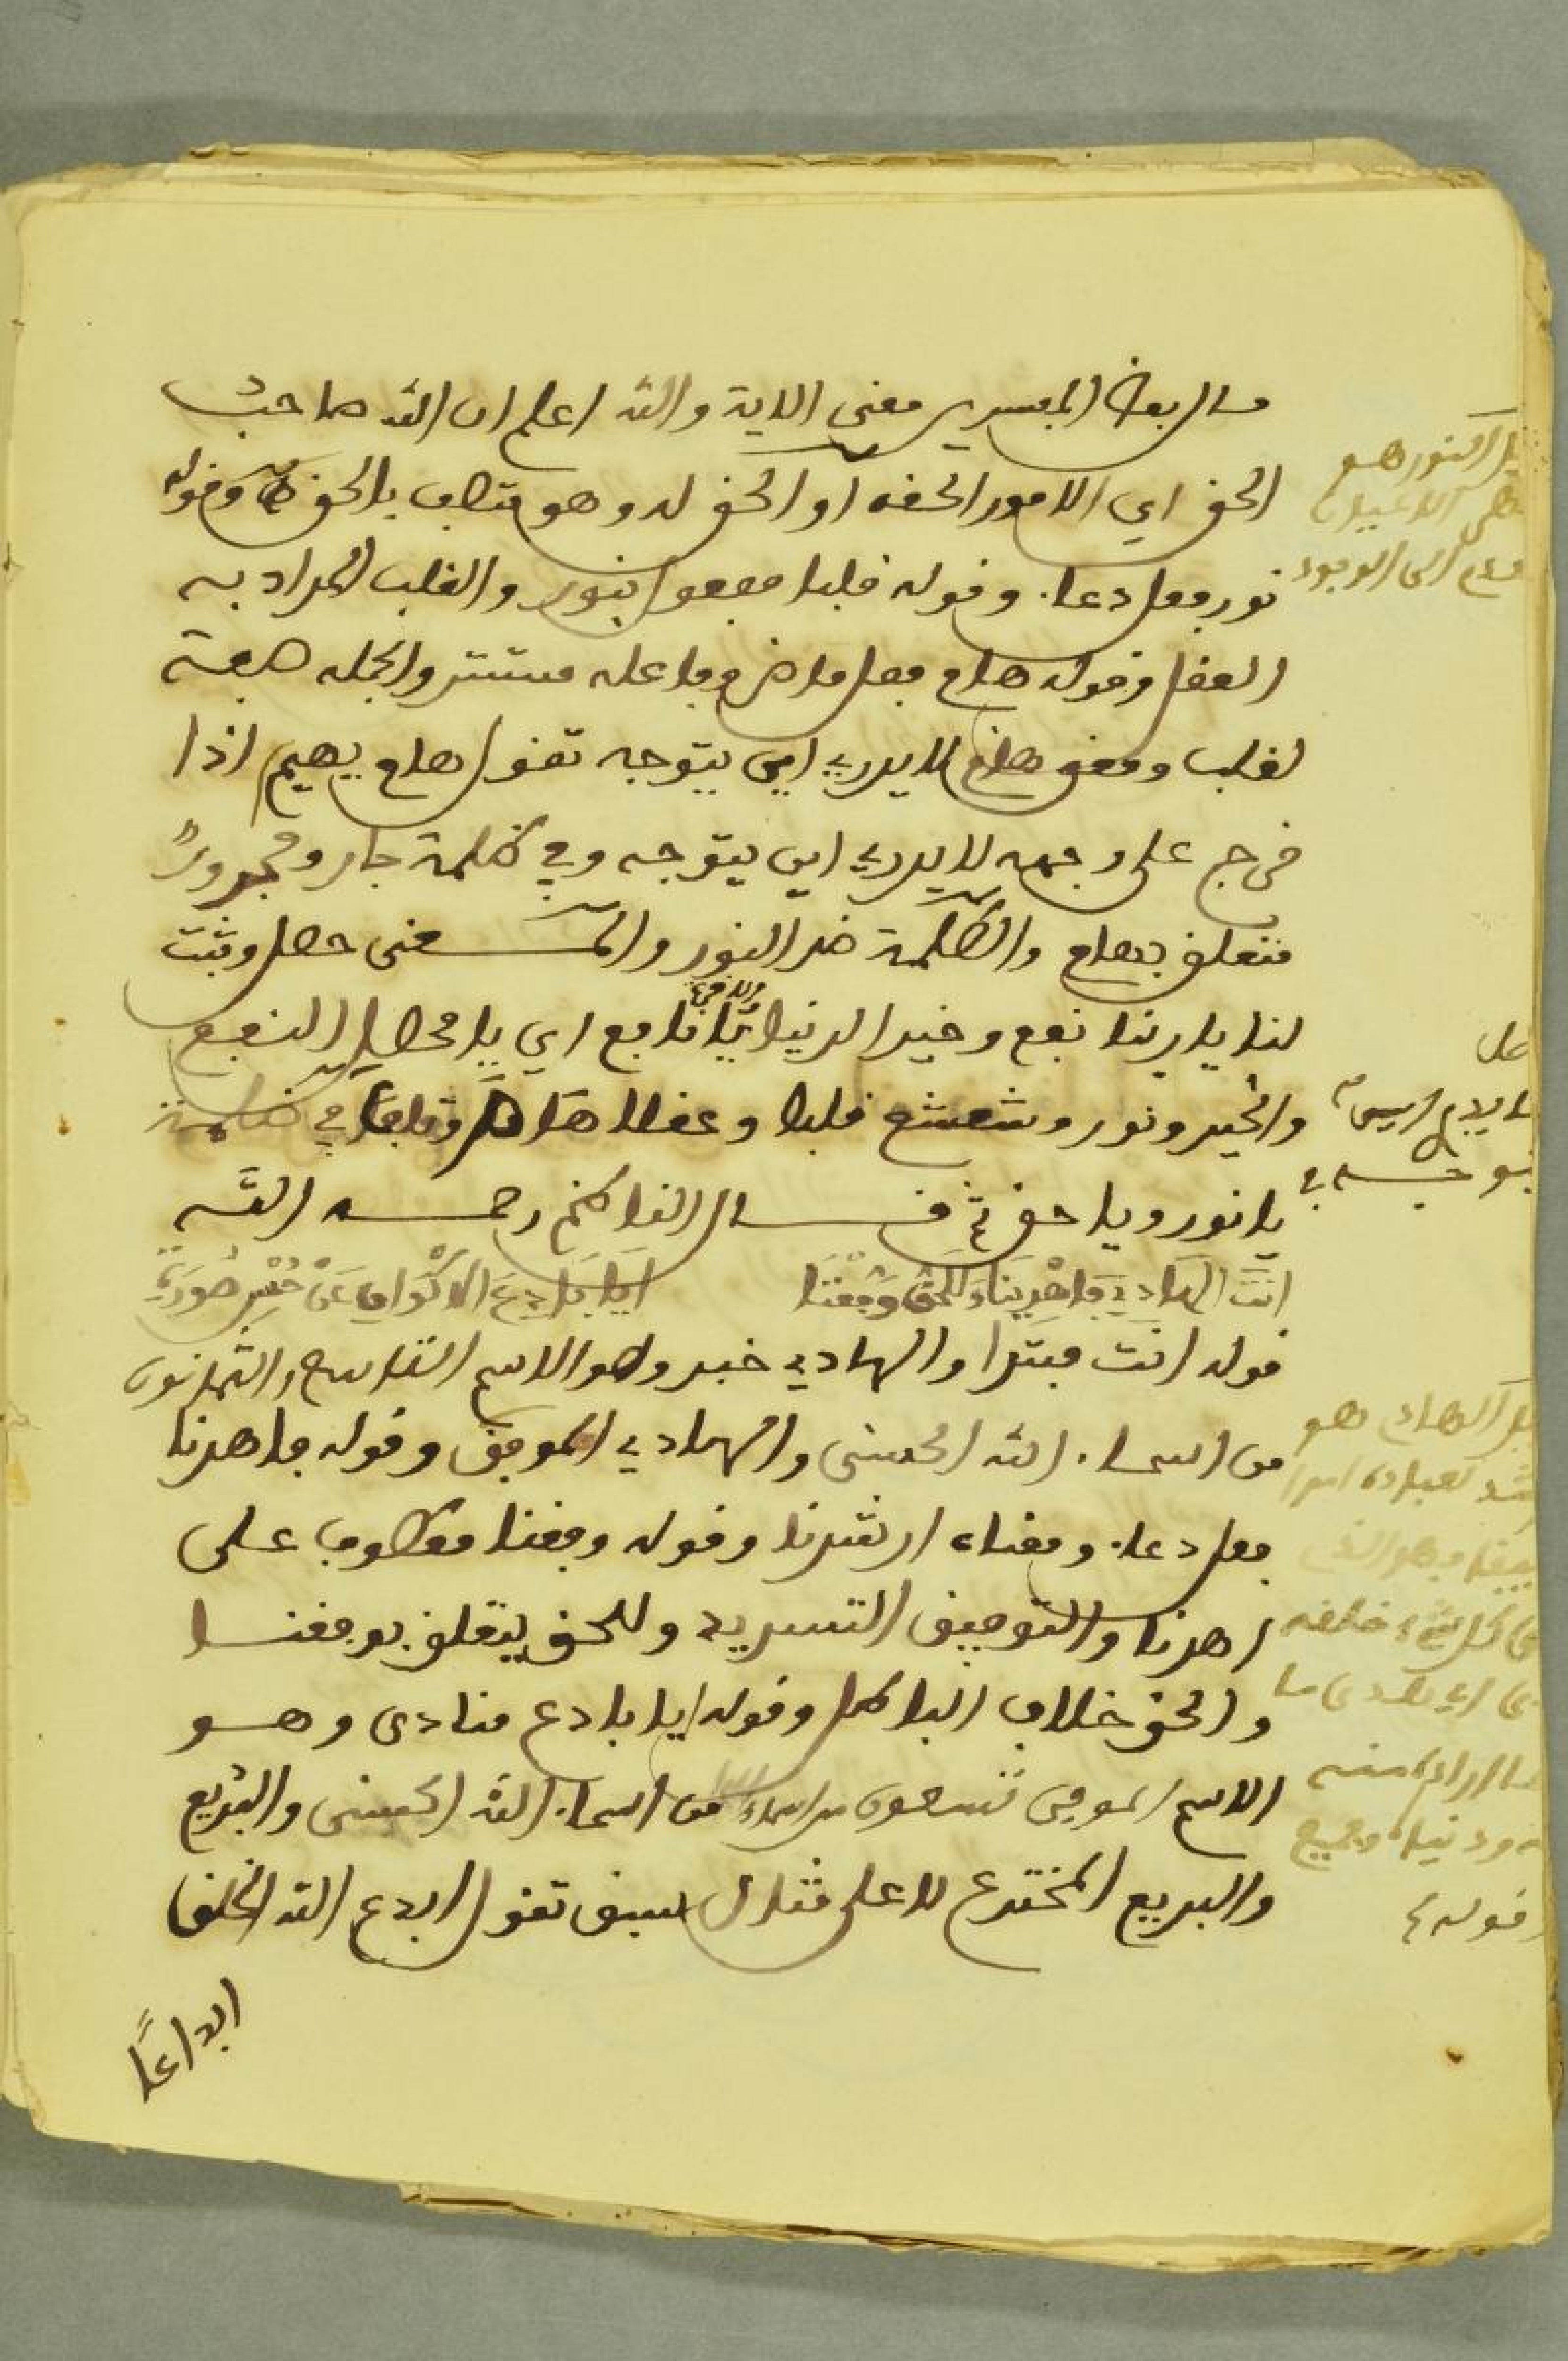 قال بعض المفسرين معنى الاية والله اعلم ان الله صاحب
الحق اي الامور الحقه او الحق له وهو متصف بالحق وقوله
نور فعل دعاء وقوله قلبا مفعول بنور والقلب المراد به
العقل وقوله هام فعل ماض وفاعله مستتر والجمله صفة
لقلب ومعنى هام لا يدري اين يتوجه تقول هام يهيم اذا
خرج على وجهه لا يدري اين يتوجه وفي ظلمة جار ومجرور
متعلق بهام والظلمة ضد النور والمعنى حصل وثبت
لنا يا ربنا نفع وخير الدنيا يا نافع اي يا محصل النفع
والخير ونور وشعشع قلبا وعقلا هام في ظلمة
يا نور ويا حق ثم قال الناظم رحمه الله
انت الهادي فاهدنا للحق وفقنا ايا بادع الاكوان عن حسن صورة
قوله انت مبتدا والهادي خبر وهو الاسم التاسع والثمانون
من اسماء الله الحسنى والهادي الموفق وقوله فاهدنا
فعل دعاء ومعناه ارشدنا وقوله وفقنا معطوف على
اهدنا والتوفيق التسديد وللحق يتعلق بوفقنا
والحق خلاف الباطل وقوله ايا بادع منادى وهو
الاسم الموفي تسعون من اسماء الله الحسنى والبديع
والبديع المخترع لا على مثال سبق تقول ابدع الله الخلق
ابداعا
النور هو
الى الوجود
الهادي هو
كل شيء خلقه
وجميع
قوله